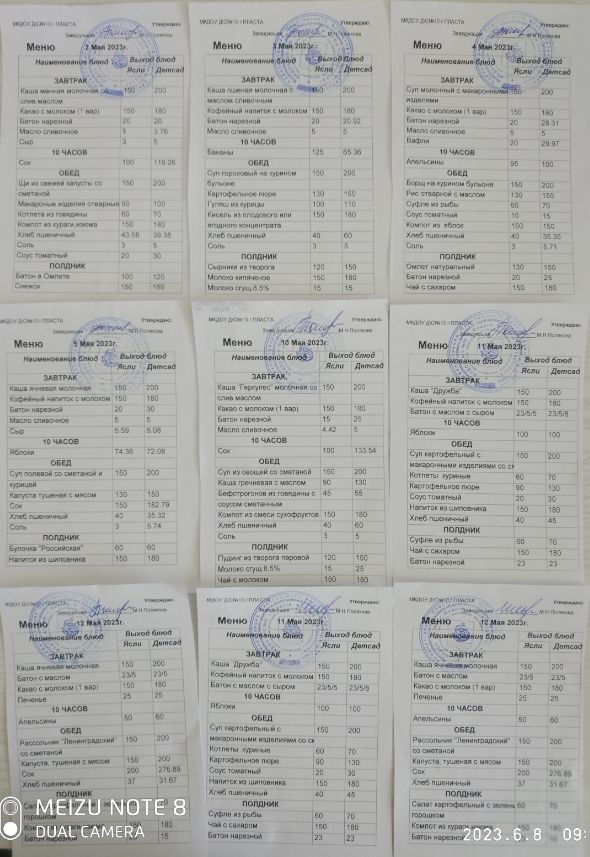 МКДОУ Д/С№10 г ПЛАСТА Утверждаю:
Заведующая М.Н.Полякова
Меню 2 Мая 2023г.
Наименование блюд Выход блюд
Ясли Детсад
ЗАВТРАК
Каша манная молочная со 150 200
слив.маслом
Какао с молоком (1 вар) 150 180
Батон нарезной 20 20
Масло сливочное 5 3.76
Сыр 3 5
10 ЧАСОВ
Сок 100 118.26
ОБЕД
Щи из свежей капусты со 150 200
сметаной
Макароные изделия отварные 90 100
Котлета из говядины 60 70
Компот из кураги,изюма 150 180
Хлеб пшеничный 43.68 39.38
Соль 3 5
Соус томатный 20 30
ПОЛДНИК
Батон в Омлете 100 120
Снежок 150 160
МКДОУ Д/С№10 г ПЛАСТА Утверждаю:
Заведующая М.Н.Полякова
Меню 3 Мая 2023г.
Наименование блюд Выход блюд
Ясли Детсад
ЗАВТРАК
Каша пшеная молочная с 150 200
маслом сливочным
Кофейный напиток с молоком 150 180
Батон нарезной 20 20.92
Масло сливочное 5 5
10 ЧАСОВ
Бананы 125 65.36
ОБЕД
Суп гороховый на курином 150 200
бульоне
Картофельное пюре 130 150
Гуляш из курицы 100 110
Кисель из плодового или 150 180
ягодного концентрата
Хлеб пшеничный 40 60
Соль 3 5
ПОЛДНИК
Сырники из творога 120 150
Молоко кипяченое 150 180
Молоко сгущ 8,5% 15 15
МКДОУ Д/С№10 г ПЛАСТА Утверждаю:
Заведующая М.Н.Полякова
Меню 4 Мая 2023г.
Наименование блюд Выход блюд
Ясли Детсад
ЗАВТРАК
Суп молочный с макаронными 150 200
изделиями
Какао с молоком (1 вар) 150 180
Батон нарезной 20 28.31
Масло сливочное 5 5
Вафли 20 29.97
10 ЧАСОВ
Апельсины 95 100
ОБЕД
Борщ на курином бульоне 150 200
Рис отварной с маслом 130 150
Суфле из рыбы 60 70
Соус томатный 10 15
Компот из яблок 150 150
Хлеб пшеничный 40 35.35
Соль 3 5.71
ПОЛДНИК
Омлет натуральный 130 150
Батон нарезной 20 25
Чай с сахаром 150 180
МКДОУ Д/С№10 г ПЛАСТА Утверждаю:
Заведующая М.Н.Полякова
Меню 5 Мая 2023г.
Наименование блюд Выход блюд
Ясли Детсад
ЗАВТРАК
Каша ячневая молочная 150 200
Кофейный напиток с молоком 150 180
Батон нарезной 20 30
Масло сливочное 5 5
Сыр 5.59 5.08
10 ЧАСОВ
Яблоки 74.36 72.08
ОБЕД
Суп полевой со сметаной и 150 200
курицей
Капуста тушеная с мясом 130 150
Сок 150 182.79
Хлеб пшеничный 40 35.32
Соль 3 5.74
ПОЛДНИК
Булочка "Российская" 60 60
Напиток из шиповника 150 180
МКДОУ Д/С№10 г ПЛАСТА Утверждаю:
Заведующая М.Н.Полякова
Меню 10 Мая 2023г.
Наименование блюд Выход блюд
Ясли Детсад
ЗАВТРАК
Каша "Геркулес" молочная со 150 200
слив.маслом
Какао с молоком (1 вар) 150 180
Батон нарезной 15 25
Масло сливочное 4.42 5
10 ЧАСОВ
Сок 100 133.54
ОБЕД
Суп из овощей со сметаной 150 200
Каша гречневая с маслом 90 130
Бефстрогонов из говядины с 45 55
соусом сметанным
Компот из смеси сухофруктов 150 180
Хлеб пшеничный 40 60
Соль 3 5
ПОЛДНИК
Пудинг из творога паровой 120 150
Молоко сгущ 8,5% 15 25
Чай с молоком 150 180
МКДОУ Д/С№10 г ПЛАСТА Утверждаю:
Заведующая М.Н.Полякова
Меню 11 Мая 2023г.
Наименование блюд Выход блюд
Ясли Детсад
ЗАВТРАК
Каша "Дружба" 150 200
Кофейный напиток с молоком 150 180
Батон с маслом с сыром 23/5/5 23/5/8
10 ЧАСОВ
Яблоки 100 100
ОБЕД
Суп картофельный с 150 200
макаронными изделиями со см
Котлеты куриные 60 70
Картофельное пюре 90 130
Соус томатный 20 30
Напиток из шиповника 150 180
Хлеб пшеничный 40 45
ПОЛДНИК
Суфле из рыбы 60 70
Чай с сахаром 150 180
Батон нарезной 23 23
МКДОУ Д/С№10 г ПЛАСТА Утверждаю:
Заведующая М.Н.Полякова
Меню 12 Мая 2023г.
Наименование блюд Выход блюд
Ясли Детсад
ЗАВТРАК
Каша ячневая молочная 150 200
Батон с маслом 23/5 23/5
Какао с молоком (1 вар) 150 180
Печенье 25 25
10 ЧАСОВ
Апельсины 50 60
ОБЕД
Рассольник "Ленинградский" 150 200
со сметаной
Капуста, тушеная с мясом 150 200
Сок 200 276.89
Хлеб пшеничный 37 31.67
ПОЛДНИК
60 70
горошком
150 180
15
МКДОУ Д/С№10 г ПЛАСТА Утверждаю:
Заведующая М.Н.Полякова
Меню 11 Мая 2023г.
Наименование блюд Выход блюд
Ясли Детсад
ЗАВТРАК
Каша "Дружба" 150 200
Кофейный напиток с молоком 150 180
Батон с маслом с сыром 23/5/5 23/5/8
10 ЧАСОВ
Яблоки 100 100
ОБЕД
Суп картофельный с 150 200
макаронными изделиями со см
Котлеты куриные 60 70
Картофельное пюре 90 130
Соус томатный 20 30
Напиток из шиповника 150 180
Хлеб пшеничный 40 45
ПОЛДНИК
Суфле из рыбы 60 70
Чай с сахаром 150 180
Батон нарезной 23 23
МКДОУ Д/С№10 г ПЛАСТА Утверждаю:
Заведующая М.Н.Полякова
Меню 12 Мая 2023г.
Наименование блюд Выход блюд
Ясли Детсад
ЗАВТРАК
Каша ячневая молочная 150 200
Батон с маслом 23/5 23/5
Какао с молоком (1 вар) 150 180
Печенье 25 25
10 ЧАСОВ
Апельсины 50 60
ОБЕД
Рассольник "Ленинградский" 150 200
со сметаной
Капуста, тушеная с мясом 150 200
Сок 200 276.89
Хлеб пшеничный 37 31.67
ПОЛДНИК
Салат картофельный с зелень 60 70
горошком
Компот из кураги 150 180
Батон нарезной 15
MEIZU NOTE 8
DUAL CAMERA
2023.6.8 09: